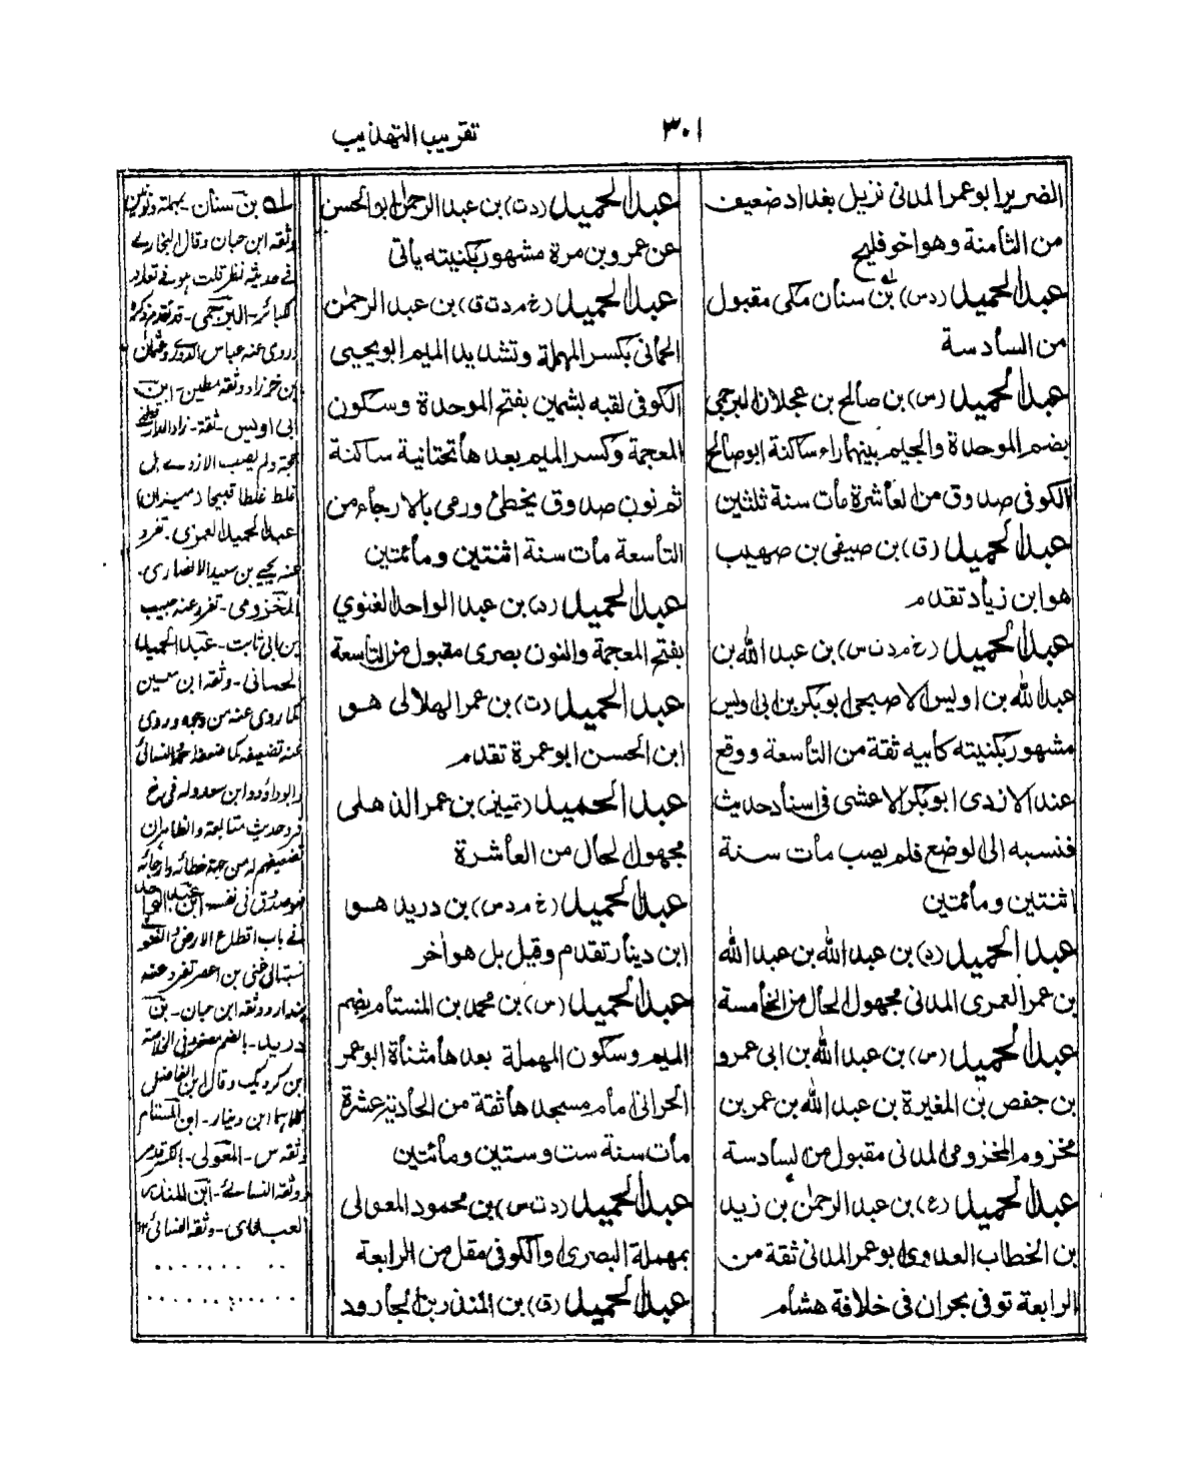 تقريب التهذيب
٣٠١
الضرير ابو عمر المدنى نزيل بغداد ضعيف
من الثامنة وهو اخو فليح
عبد الحميد (د س) بن سنان مكى مقبول
من السادسة
عبد الحميد (س) بن صالح بن عجلان البرجمى
بضم الموحدة والجيم بينهما راء ساكنة ابو صالح
الكوفى صدوق من العاشرة مات سنة ثلثين
عبد الحميد (ق) بن صيفى بن صهيب
هو ابن زياد تقدم
عبد الحميد (خ م د ت س) بن عبد الله بن
عبد الله بن اويس الاصبحى ابو بكر بن ابى اويس
مشهور بكنيته كأبيه ثقة من التاسعة ووقع
عند الازدى ابو بكر الاعشى فى اسناد حديث
فنسبه الى الوضع فلم يصب مات سنة
اثنتين ومائتين
عبد الحميد (د) بن عبد الله بن عبد الله
بن عمر العمرى المدنى مجهول الحال من الخامسة
عبد الحميد (س) بن عبد الله بن ابى عمرو
بن حفص بن المغيرة بن عبد الله بن عمر بن
مخزوم المخزومى المدنى مقبول من السادسة
عبد الحميد (ع) بن عبد الرحمٰن بن زيد
بن الخطاب العدوى ابو عمر المدنى ثقة من
الرابعة توفى بحران فى خلافة هشام
عبد الحميد (د ت) بن عبد الرحمٰن ابو الحسن
عن عمرو بن مرة مشهور بكنيته يأتى
عبد الحميد (خ م د ت ق) بن عبد الرحمٰن
الحمانى بكسر المهملة وتشديد الميم ابو يحيى
الكوفى لقبه بشمين بفتح الموحدة وسكون
المعجمة وكسر الميم بعدها تحتانية ساكنة
ثم نون صدوق يخطئ ورمى بالارجاء من
التاسعة مات سنة اثنتين ومائتين
عبد الحميد (د) بن عبد الواحد الغنوي
بفتح المعجمة والنون بصرى مقبول من التاسعة
عبد الحميد (ت) بن عمر الهلالى هو
ابن الحسن ابو عمرة تقدم
عبد الحميد (تمييز) بن عمر الذهلى
مجهول الحال من العاشرة
عبد الحميد (خ م د س) بن دريد هو
ابن دينار تقدم وقيل بل هو اٰخر
عبد الحميد (س) بن محمد بن المستام بضم
الميم وسكون المهملة بعدها مثناة ابو عمر
الحرانى امام مسجدها ثقة من الحادية عشرة
مات سنة ست وستين ومائتين
عبد الحميد (د ت س) بن محمود المعولى
بمهملة البصرى او الكوفى مقل من الرابعة
عبد الحميد (ق) بن المنذر بن الجارود
له بن سنان - بمهملة ونونين
وثقه ابن حبان وقال البخارے
فے حديثه نظر قلت هو فے تعداد
الكبائر - البرجمى - قد تقدم ذكره
روى عنه عباس الدورى وعثمان
بن خرزاد وثقه مطين - ابن
ابى اويس - ثقة - زاد الدارقطنى
حجة ولم يصب الازدے بل
غلط غلطا قبيحا (ميزان)
عبد الحميد العمرى - تفرد
عنه يحيے بن سعيد الانصارى -
المخزومى - تفرد عنه حبيب
بن ابى ثابت - عبد الحميد
الحمانى - وثقه ابن معين
كما روى عنه من وجه وروى
عنه تضعيفه كما ضعفه احمد والنسائى
وابو داؤد وابن سعد وله فى خ
فرد حديث متابعة والظاهر ان
تضعيفهم له من جهة خطائه وارجائه
فهو صدوق فى نفسه ابن عبد الواحد
فے باب اقطاع الارض والغنوى
نسبة الى غنى بن اعصر تفرد عنه
بندار ووثقه ابن حبان - بن
دريد - بالضم مصغر وفى الخلاصة
ابن كرديد وقال ابن الفاضلى
كلاهما ابن دينار - ابن المستام
وثقه س - المعولى -
ووثقه النسائے - ابن المنذر
العبدى - وثقه النسائى ١٢